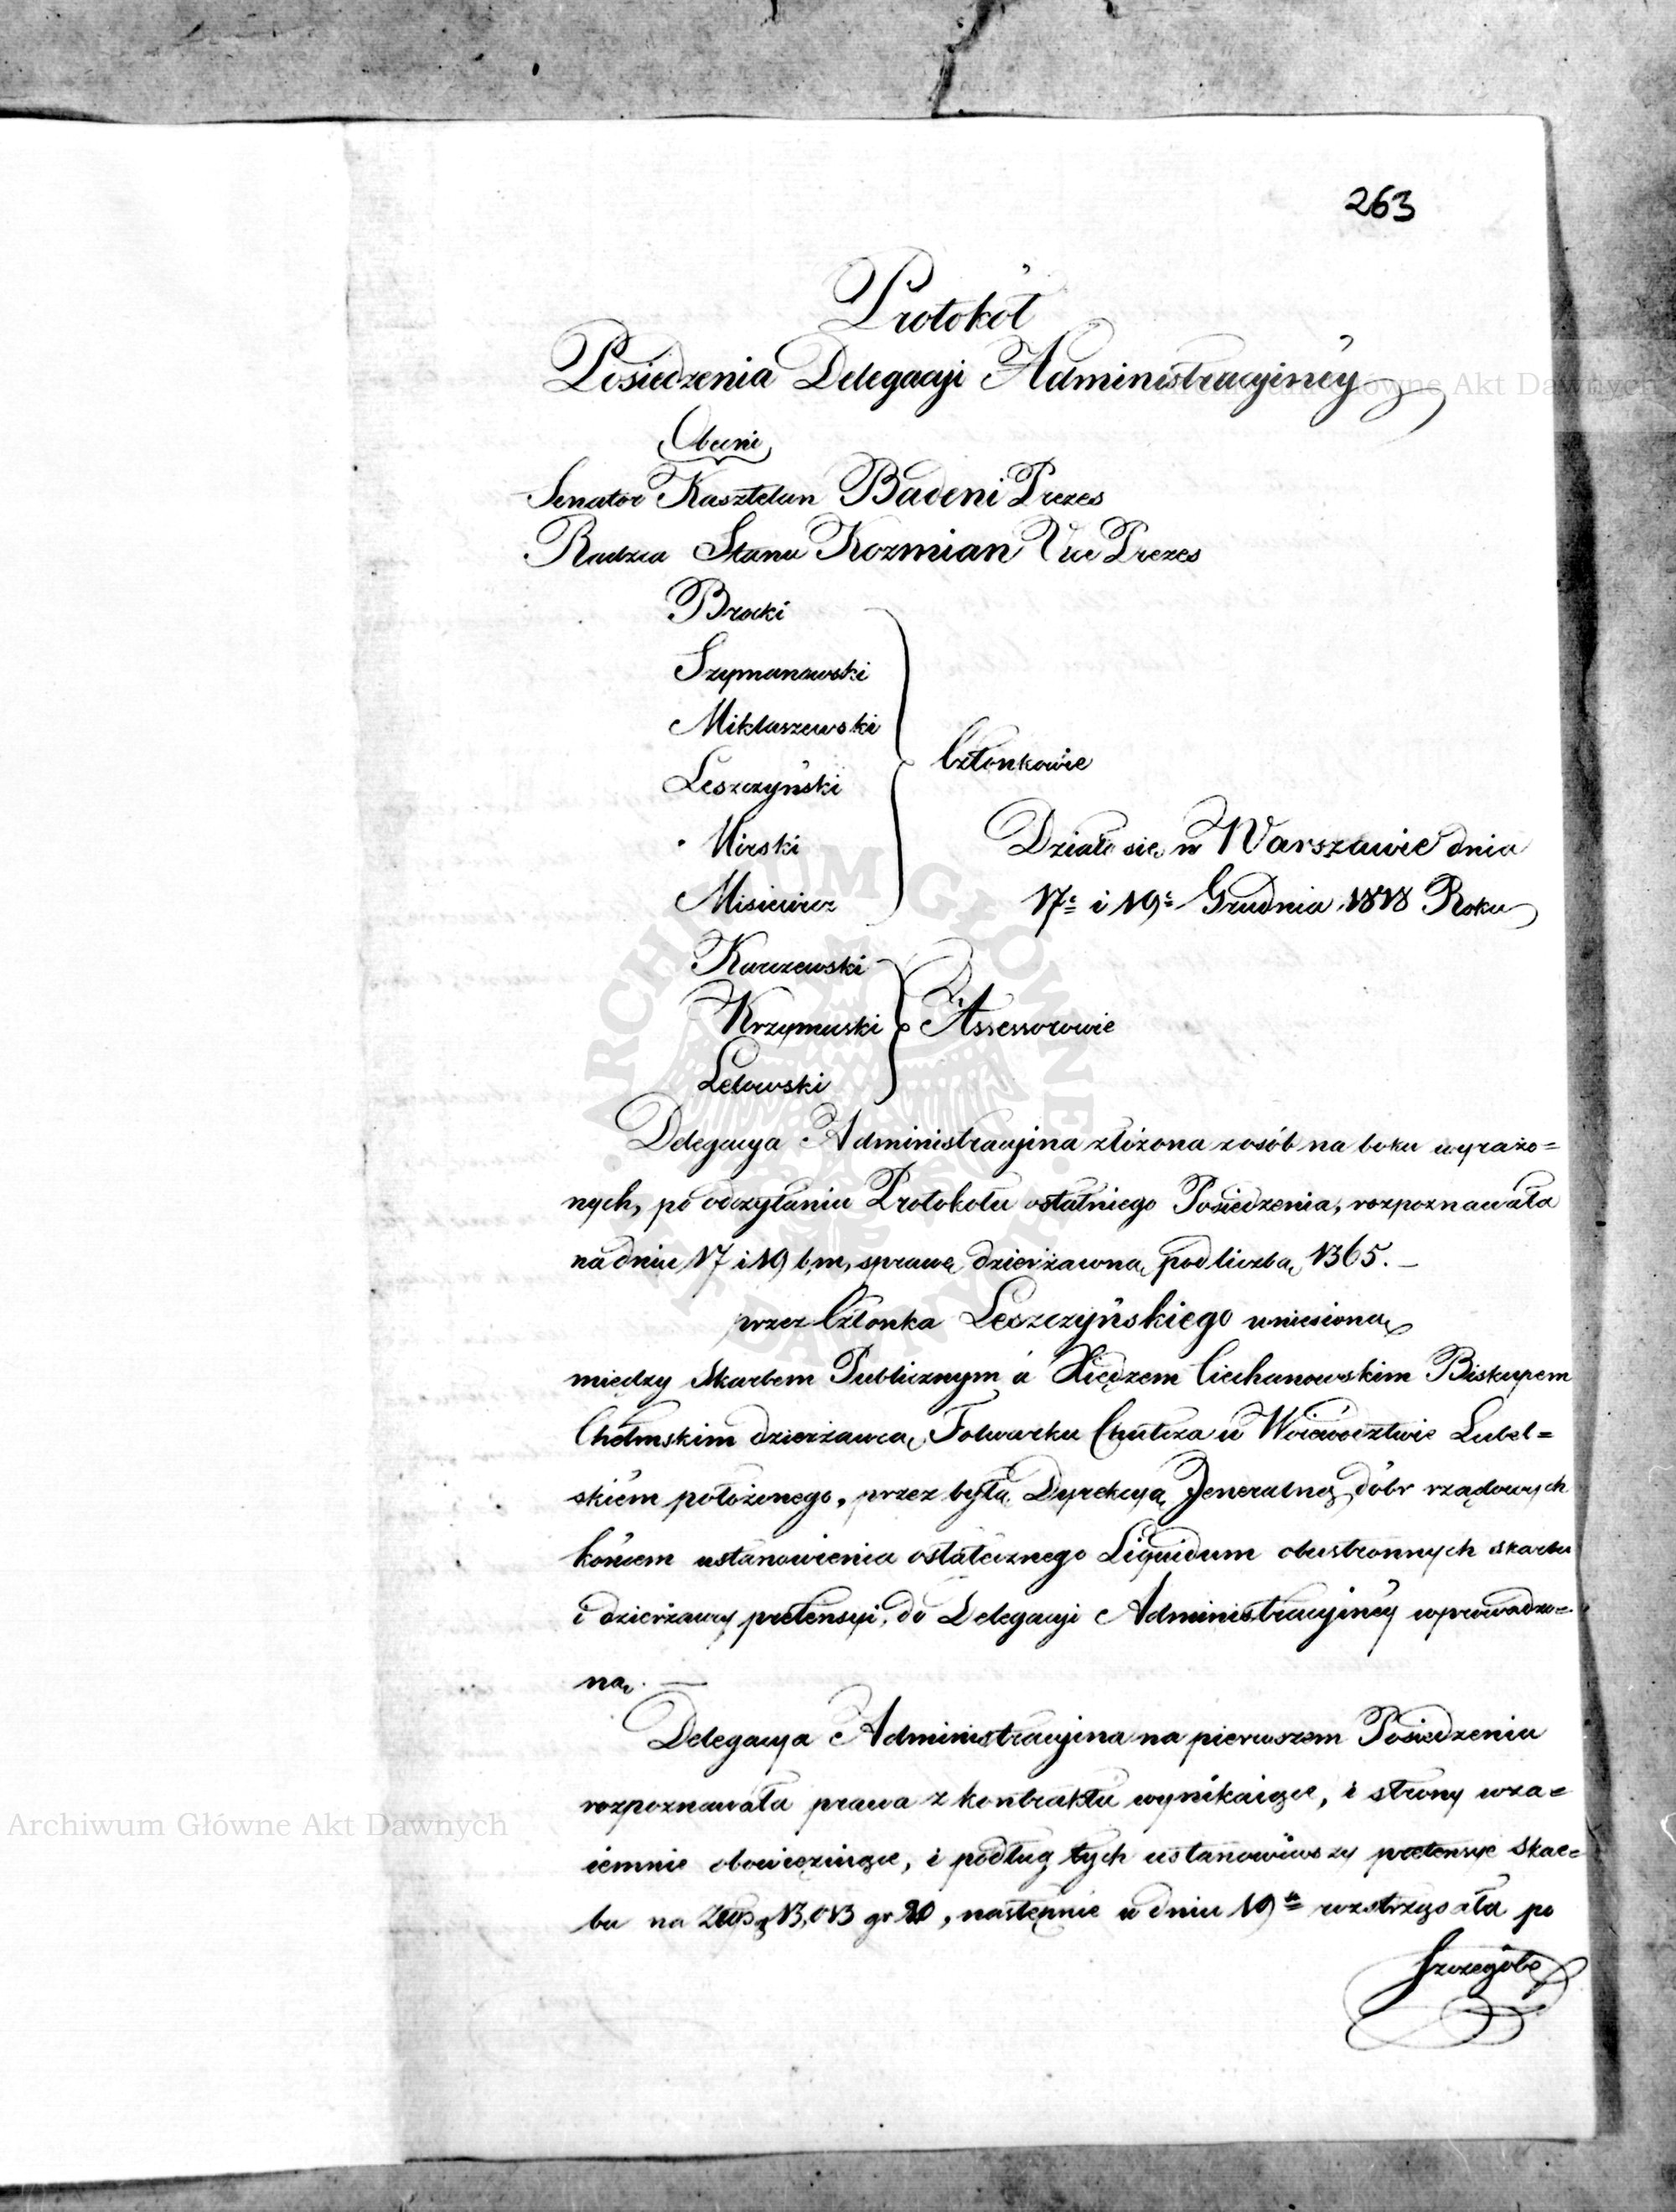 263
Protokół
Posiedzenia Delegacyi Administracyinéy
Obecni
Senator Kasztelan Badeni Prezes
Radzca Stanu Kozmian Vice Prezes
Brocki
Szymanowski
Mikłaszewski
Leszczyński
Członkowie
Mirski
Działo się w Warszawie dnia
Misiewicz
17º i 19º Grudnia 1818 Roku
Karczewski
Krzymuski
Assessorowie
Lelowski
Delegacya Administracyina złożona z osób na boku wyrażo=
nych, po odczytaniu Protokołu ostatniego Posiedzenia, rozpoznawała
na dniu 17 i 19 b,m, sprawę dzierżawną pod liczbą 1365. —
przez Członka Leszczyńskiego wniesioną
między Skarbem Publicznym a Xiędzem Ciechanowskim Biskupem
Chełmskim dzierżawcą Folwarku Chutcza w Woiewództwie Lubel=
skiém położonego, przez byłą Dyrekcyą Jeneralną dóbr rządowych
końcem ustanowienia ostatecznego Liquidum obustronnych skarbu
i dzierżawcy pretensyi, do Delegacyi Administracyinéy wprowadzo=
ną. —
Delegacya Administracyina na pierwszem Posiedzeniu
rozpoznawała prawa z kontraktu wynikaiące, i strony wza=
iemnie obowięzuiące, i podług tych ustanowiwszy pretensye Skar=
bu na 13,013 gr 20, następnie w dniu 19 roztrząsała po
Szczególe
Archiwum Główne Akt Dawnych